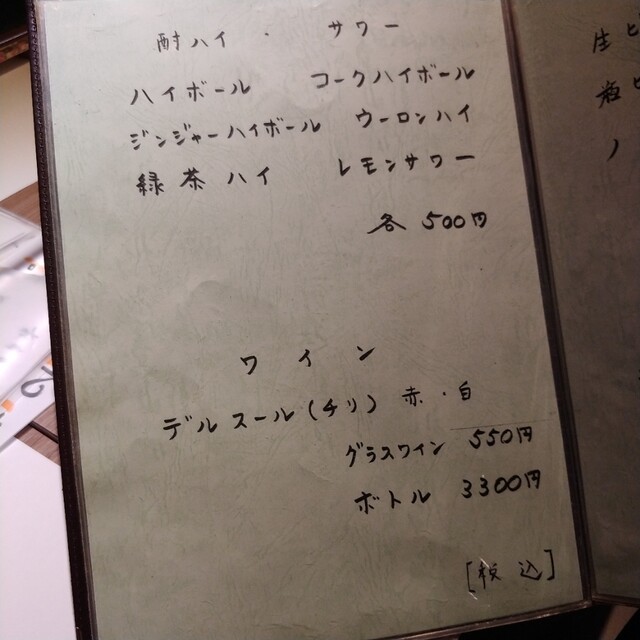 酎ハイ・サワー
ハイボール コークハイボール
ジンジャーハイボール ウーロンハイ
緑茶ハイ レモンサワー
各 500円
ワイン
デルスール(チリ) 赤・白
グラスワイン 550円
ボトル 3300円
[税込]
生ビ
ノ